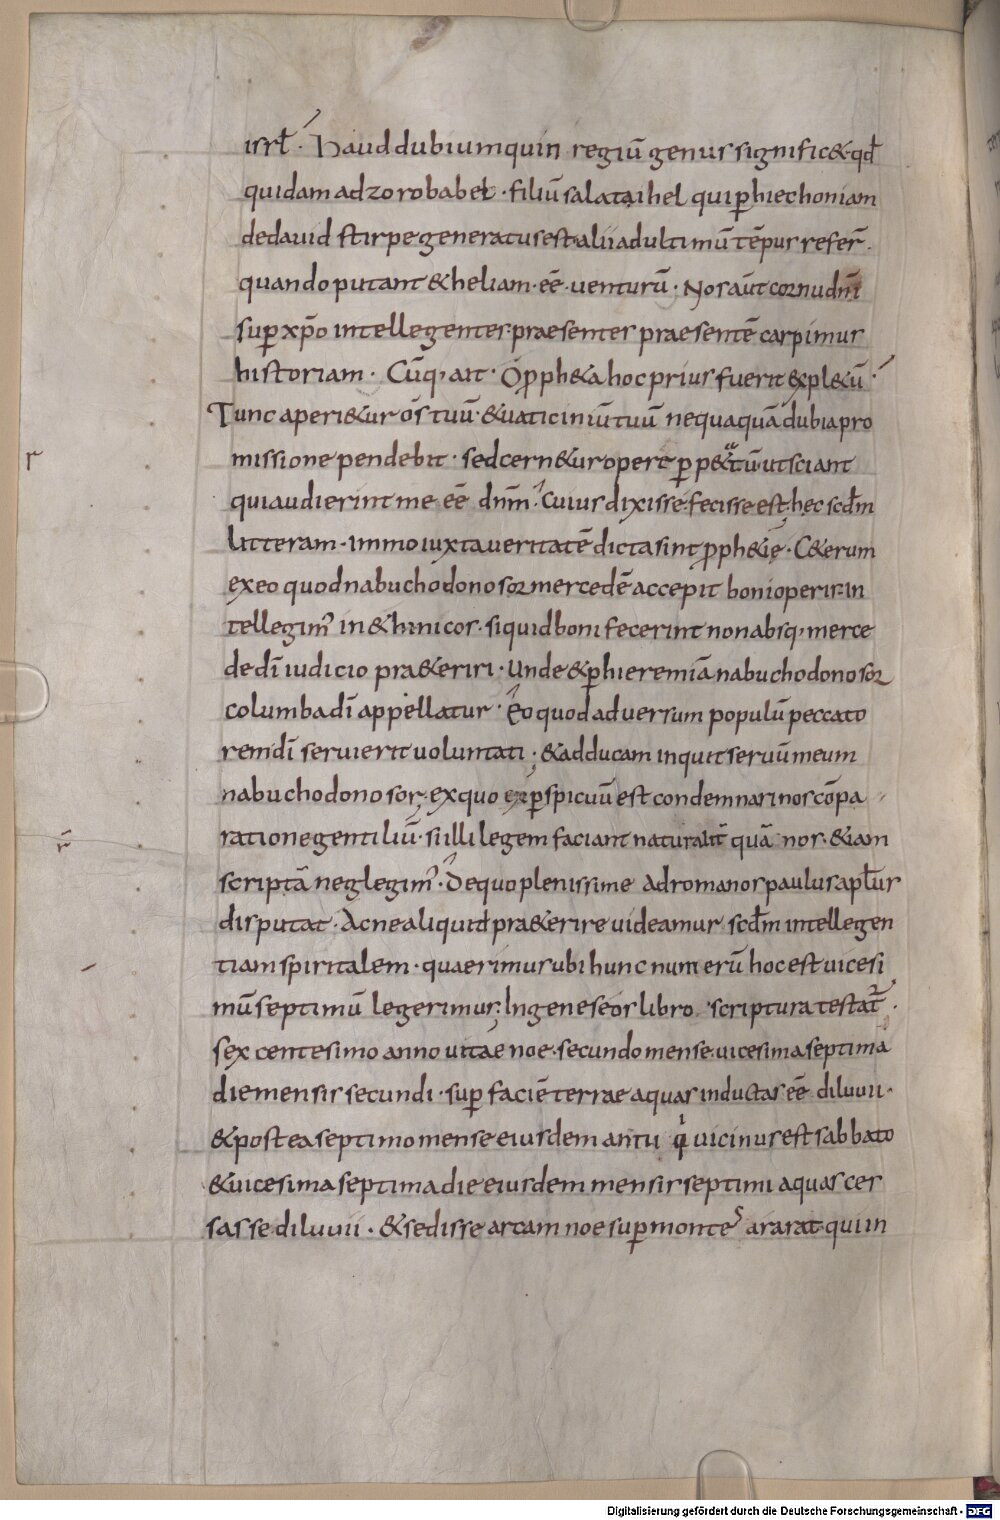 isrl̄. Haud dubium quin regiū genus signific&. qd̄
quidam ad zorobabel. filiū salataihel qui ꝑ hiechoniam
de dauid stirpe generatus est. alii ad ultimū tēpus refer̄.
quando putant & heliam. eē. uenturū. Nos aūt cornu dnī
suꝑ xp̄o intellegentes praesentes praesentē carpimus
historiam. Cūq, ait. Ꝓph&a hoc prius fuerit expl&ū.
Tunc aperi&ur os tuū. & uaticiniū tuū nequaquā dubia pro
missione pendebit. sed cern&ur opere ꝑp&tatū ut sciant
qui audierint me eē dnm̄. Cuius dixisse. fecisse est. hęc scd̄m
litteram. immo iuxta ueritatē dicta sint ꝓph&ię. C&erum
ex eo quod nabuchodonosor mercedē accepit boni operis. in
tellegim' in &hnicos. si quid boni fecerint non absq, merce
de dī iudicio pra&eriri. Unde & ꝑ hieremiā nabuchodonosor
columba dī appellatur. Eo quod aduersum populū peccato
rem dī seruierit uoluntati. & adducam inquit seruū meum
nabuchodonosor. ex quo ꝑspicuū est condemnari nos cōpa
ratione gentiliū. si illi legem faciant naturalit̄ quā nos. &iam
scriptā neglegim'. De quo plenissime ad romanos paulus apl̄us
disputat. Ac ne aliquid pra&erire uideamur scd̄m intellegen
tiam spiritalem. quaerimus ubi hunc numerū hoc est uicesi
mū septimū legerimus. In geneseos libro scriptura testat̄.
sexcentesimo anno uitae noe. secundo mense. uicesima septima
die mensis secundi. suꝑ faciē terrae aquas inductas eē diluuii.
& postea septimo mense eiusdem anni q̇ uicinus est sabbato
& uicesima septima die eiusdem mensis septimi aquas ces
sasse diluuii. & sedisse arcam noe suꝑ montes ararat. qui in
Digitalisierung gefördert durch die Deutsche Forschungsgemeinschaft - DFG